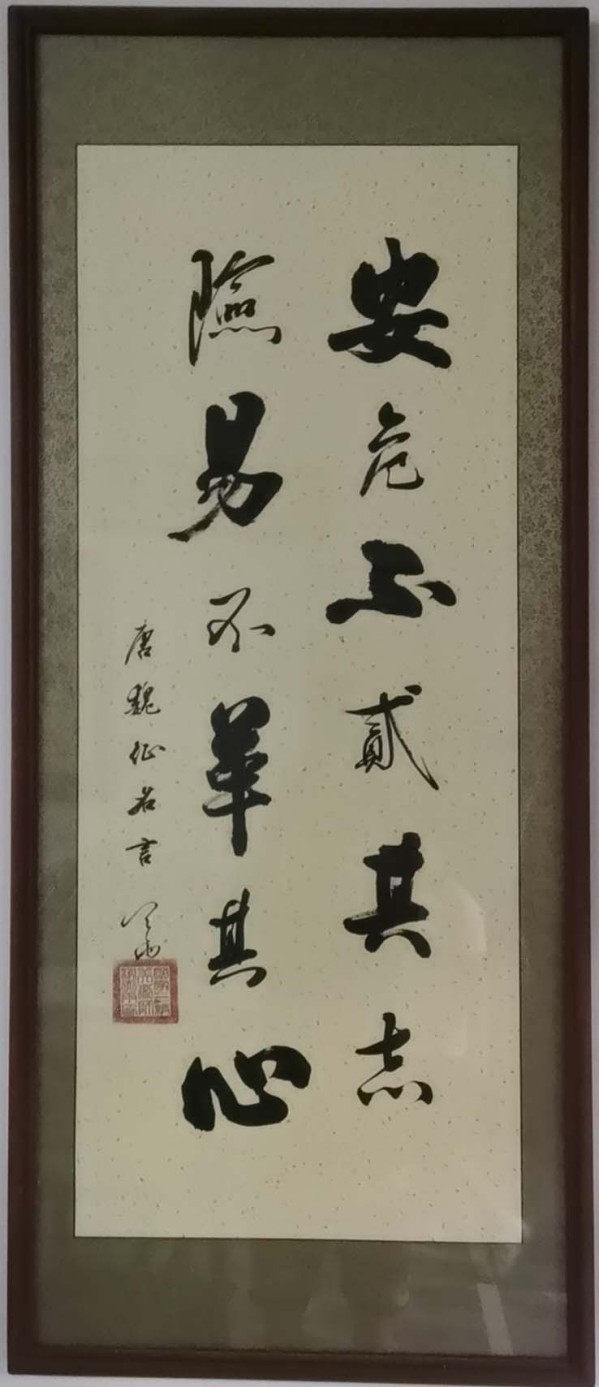 安危不貳其志
險易不革其心
唐魏征名言